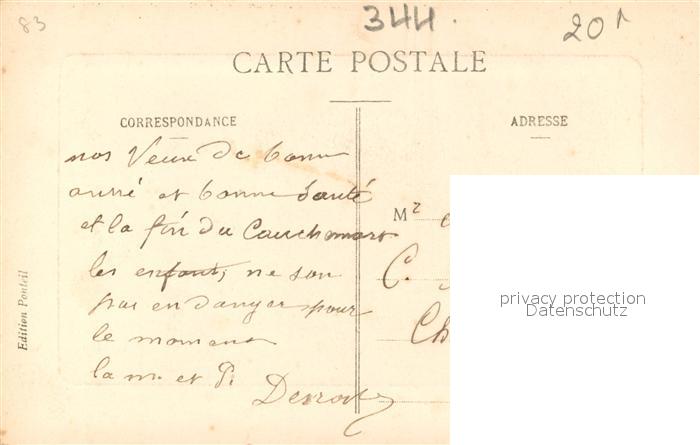 83
344.
20
CARTE POSTALE
CORRESPONDANCE
ADRESSE
nos Veux de bonne
année et bonne Santé
et la fin du Cauchmars
les enfants, ne son
pas en danger pour
le moment
la m. et P.
Mr
C.
Ch
Edition Ponteil
privacy protection
Datenschutz